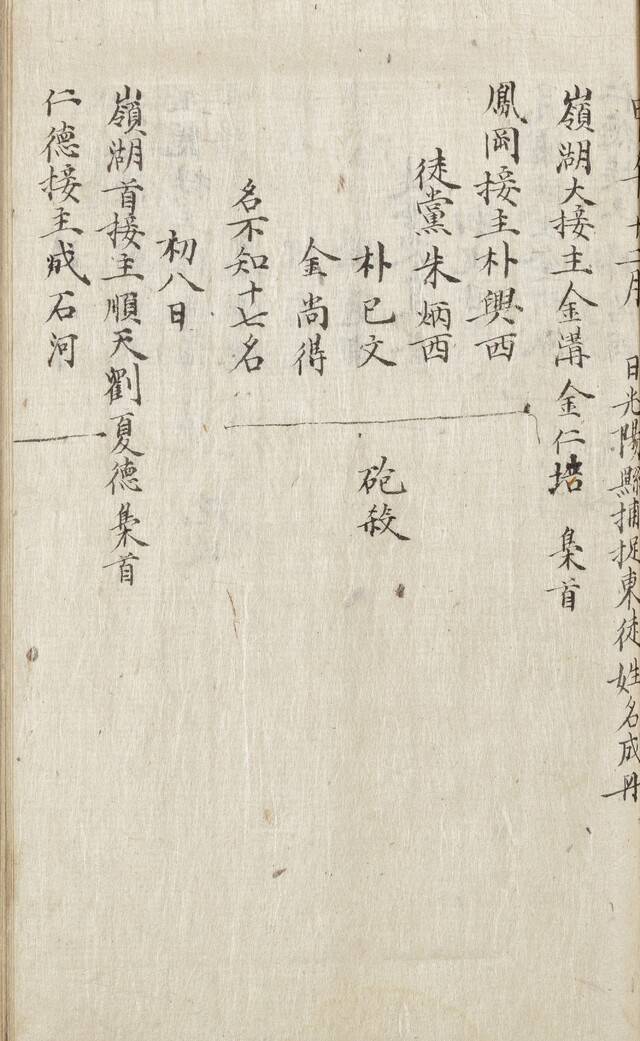 年十二月 日光陽縣捕捉東徒姓名成冊
嶺湖大接主金溝金仁培 梟首
鳳岡接主朴興西
徒黨朱炳西
朴巳文 砲殺
金尚得
名不知十七名
初八日
嶺湖首接主順天劉夏德梟首
仁德接主成石河